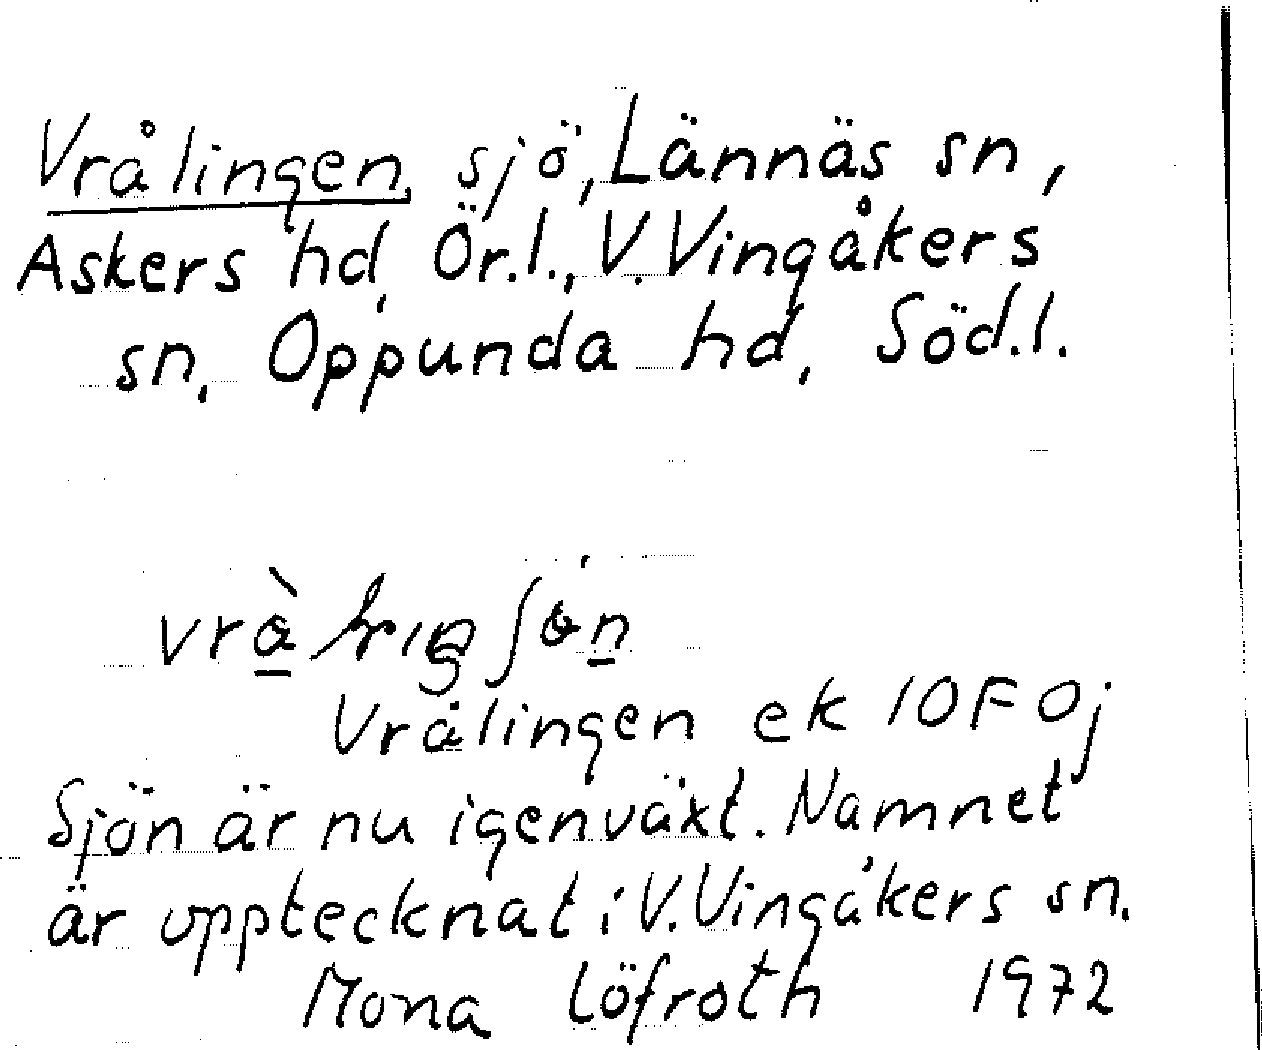 Vrålingen, sjö, Lännäs sn,
Askers hd, Ör.l., V. Vingåkers
sn, Oppunda hd, Söd.l.
Vrålingen ek 10F 0j
Sjön är nu igenväxt. Namnet
är upptecknat i V. Vingåkers sn.
Mona Löfroth 1972